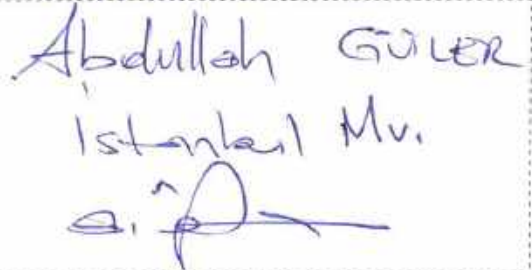 Abdullah GÜLER
İstanbul Mv.